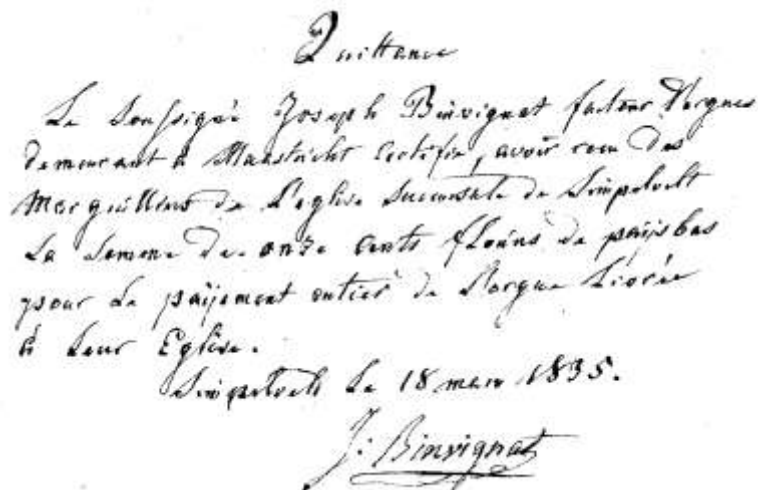 Quittance
Le Soussigné Joseph Binvignat facteur d'orgues
demeurant à Maastricht Certifie, avoir recu des
Marguilliers de L'eglise Succursale de Simpelvelt
La Somme de onze Cents florins de paijsbas
pour Le paijement entier de L'orgue Livrée
à Leur Eglise.
Simpelvelt Le 18 mars 1835.
J: Binvignat